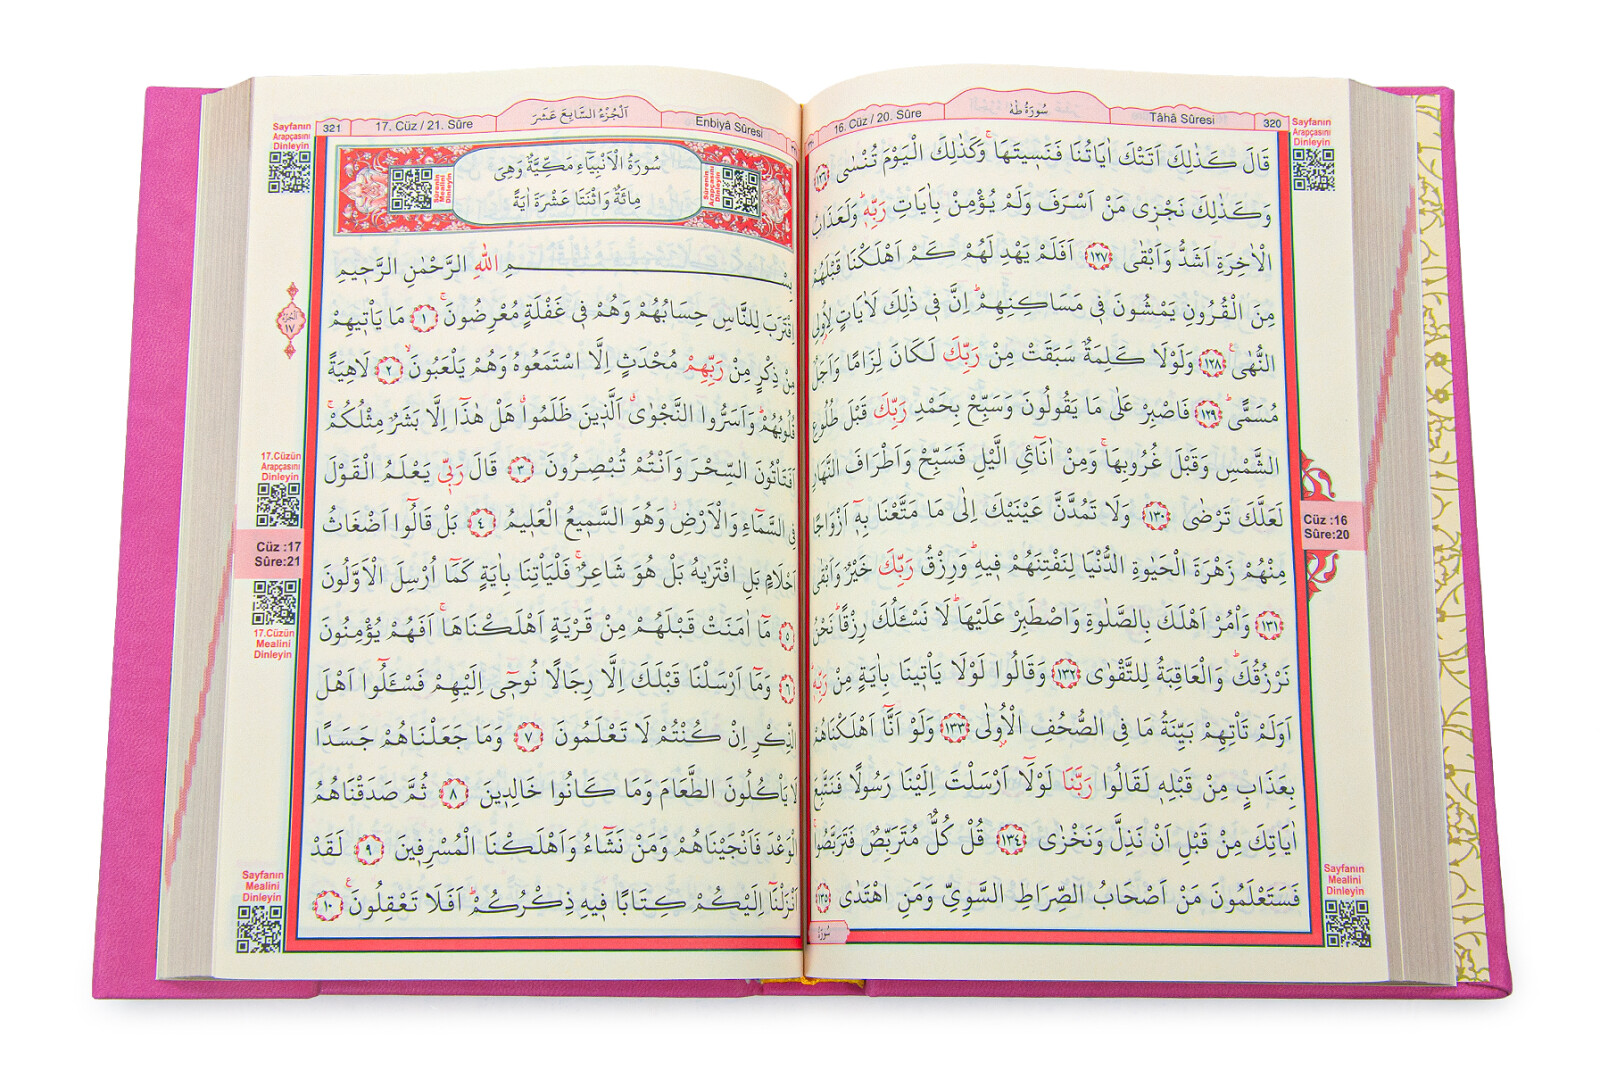 320
Tâhâ Sûresi
سُورَةُ طٰهٰ
16. Cüz / 20. Sûre
Sayfanın
Arapçasını
Dinleyin
قَالَ كَذٰلِكَ اَتَتْكَ اٰيَاتُنَا فَنَسٖيتَهَاۚ وَكَذٰلِكَ الْيَوْمَ تُنْسٰى ﴿١٢٦﴾
وَكَذٰلِكَ نَجْزٖى مَنْ اَسْرَفَ وَلَمْ يُؤْمِنْ بِاٰيَاتِ رَبِّهٖۜ وَلَعَذَابُ
الْاٰخِرَةِ اَشَدُّ وَاَبْقٰى ﴿١٢٧﴾ اَفَلَمْ يَهْدِ لَهُمْ كَمْ اَهْلَكْنَا قَبْلَهُمْ
مِنَ الْقُرُونِ يَمْشُونَ فٖى مَسَاكِنِهِمْۜ اِنَّ فٖى ذٰلِكَ لَاٰيَاتٍ لِاُولِى
النُّهٰى۟ ﴿١٢٨﴾ وَلَوْلَا كَلِمَةٌ سَبَقَتْ مِنْ رَبِّكَ لَكَانَ لِزَامًا وَاَجَلٌ
مُسَمًّىۜ ﴿١٢٩﴾ فَاصْبِرْ عَلٰى مَا يَقُولُونَ وَسَبِّحْ بِحَمْدِ رَبِّكَ قَبْلَ طُلُوعِ
الشَّمْسِ وَقَبْلَ غُرُوبِهَاۚ وَمِنْ اٰنَٓائِ الَّيْلِ فَسَبِّحْ وَاَطْرَافَ النَّهَارِ
لَعَلَّكَ تَرْضٰى ﴿١٣٠﴾ وَلَا تَمُدَّنَّ عَيْنَيْكَ اِلٰى مَا مَتَّعْنَا بِهٖٓ اَزْوَاجًا
مِنْهُمْ زَهْرَةَ الْحَيٰوةِ الدُّنْيَا لِنَفْتِنَهُمْ فٖيهِۜ وَرِزْقُ رَبِّكَ خَيْرٌ وَاَبْقٰى
﴿١٣١﴾ وَأْمُرْ اَهْلَكَ بِالصَّلٰوةِ وَاصْطَبِرْ عَلَيْهَاۜ لَا نَسْـَٔلُكَ رِزْقًاۜ نَحْنُ
نَرْزُقُكَۜ وَالْعَاقِبَةُ لِلتَّقْوٰى ﴿١٣٢﴾ وَقَالُوا لَوْلَا يَأْتٖينَا بِاٰيَةٍ مِنْ رَبِّهٖۜ
اَوَلَمْ تَأْتِهِمْ بَيِّنَةُ مَا فِى الصُّحُفِ الْاُولٰى ﴿١٣٣﴾ وَلَوْ اَنَّٓا اَهْلَكْنَاهُمْ
بِعَذَابٍ مِنْ قَبْلِهٖ لَقَالُوا رَبَّنَا لَوْلَٓا اَرْسَلْتَ اِلَيْنَا رَسُولًا فَنَتَّبِعَ
اٰيَاتِكَ مِنْ قَبْلِ اَنْ نَذِلَّ وَنَخْزٰى ﴿١٣٤﴾ قُلْ كُلٌّ مُتَرَبِّصٌ فَتَرَبَّصُواۚ
فَسَتَعْلَمُونَ مَنْ اَصْحَابُ الصِّرَاطِ السَّوِىِّ وَمَنِ اهْتَدٰى ﴿١٣٥﴾
سُورَةُ
Cüz :16
Sûre:20
Sayfanın
Mealini
Dinleyin
Enbiyâ Sûresi
اَلْجُزْءُ السَّابِعَ عَشَرَ
17. Cüz / 21. Sûre
321
Sayfanın
Arapçasını
Dinleyin
Sûrenin
Arapçasını
Dinleyin
سُورَةُ الْاَنْبِيَٓاءِ مَكِّيَّةٌ وَهِىَ
مِائَةٌ وَاثْنَتَا عَشْرَةَ اٰيَةً
Sûrenin
Mealini
Dinleyin
بِسْمِ اللّٰهِ الرَّحْمٰنِ الرَّحٖيمِ
اِقْتَرَبَ لِلنَّاسِ حِسَابُهُمْ وَهُمْ فٖى غَفْلَةٍ مُعْرِضُونَۚ ﴿١﴾ مَا يَأْتٖيهِمْ
مِنْ ذِكْرٍ مِنْ رَبِّهِمْ مُحْدَثٍ اِلَّا اسْتَمَعُوهُ وَهُمْ يَلْعَبُونَۙ ﴿٢﴾ لَاهِيَةً
قُلُوبُهُمْۜ وَاَسَرُّوا النَّجْوٰىۗ اَلَّذٖينَ ظَلَمُواۗ هَلْ هٰذَٓا اِلَّا بَشَرٌ مِثْلُكُمْۚ
اَفَتَأْتُونَ السِّحْرَ وَاَنْتُمْ تُبْصِرُونَ ﴿٣﴾ قَالَ رَبّٖى يَعْلَمُ الْقَوْلَ
فِى السَّمَٓاءِ وَالْاَرْضِۘ وَهُوَ السَّمٖيعُ الْعَلٖيمُ ﴿٤﴾ بَلْ قَالُٓوا اَضْغَاثُ
اَحْلَامٍ بَلِ افْتَرٰيهُ بَلْ هُوَ شَاعِرٌۚ فَلْيَأْتِنَا بِاٰيَةٍ كَمَٓا اُرْسِلَ الْاَوَّلُونَ
﴿٥﴾ مَٓا اٰمَنَتْ قَبْلَهُمْ مِنْ قَرْيَةٍ اَهْلَكْنَاهَاۚ اَفَهُمْ يُؤْمِنُونَ
﴿٦﴾ وَمَٓا اَرْسَلْنَا قَبْلَكَ اِلَّا رِجَالًا نُوحٖٓى اِلَيْهِمْ فَسْـَٔلُٓوا اَهْلَ
الذِّكْرِ اِنْ كُنْتُمْ لَا تَعْلَمُونَ ﴿٧﴾ وَمَا جَعَلْنَاهُمْ جَسَدًا
لَا يَأْكُلُونَ الطَّعَامَ وَمَا كَانُوا خَالِدٖينَ ﴿٨﴾ ثُمَّ صَدَقْنَاهُمُ
الْوَعْدَ فَاَنْجَيْنَاهُمْ وَمَنْ نَشَٓاءُ وَاَهْلَكْنَا الْمُسْرِفٖينَ ﴿٩﴾ لَقَدْ
اَنْزَلْنَٓا اِلَيْكُمْ كِتَابًا فٖيهِ ذِكْرُكُمْۜ اَفَلَا تَعْقِلُونَ۟ ﴿١٠﴾
اَلْجُزْءُ
١٧
17.Cüzün
Arapçasını
Dinleyin
Cüz :17
Sûre:21
17.Cüzün
Mealini
Dinleyin
Sayfanın
Mealini
Dinleyin